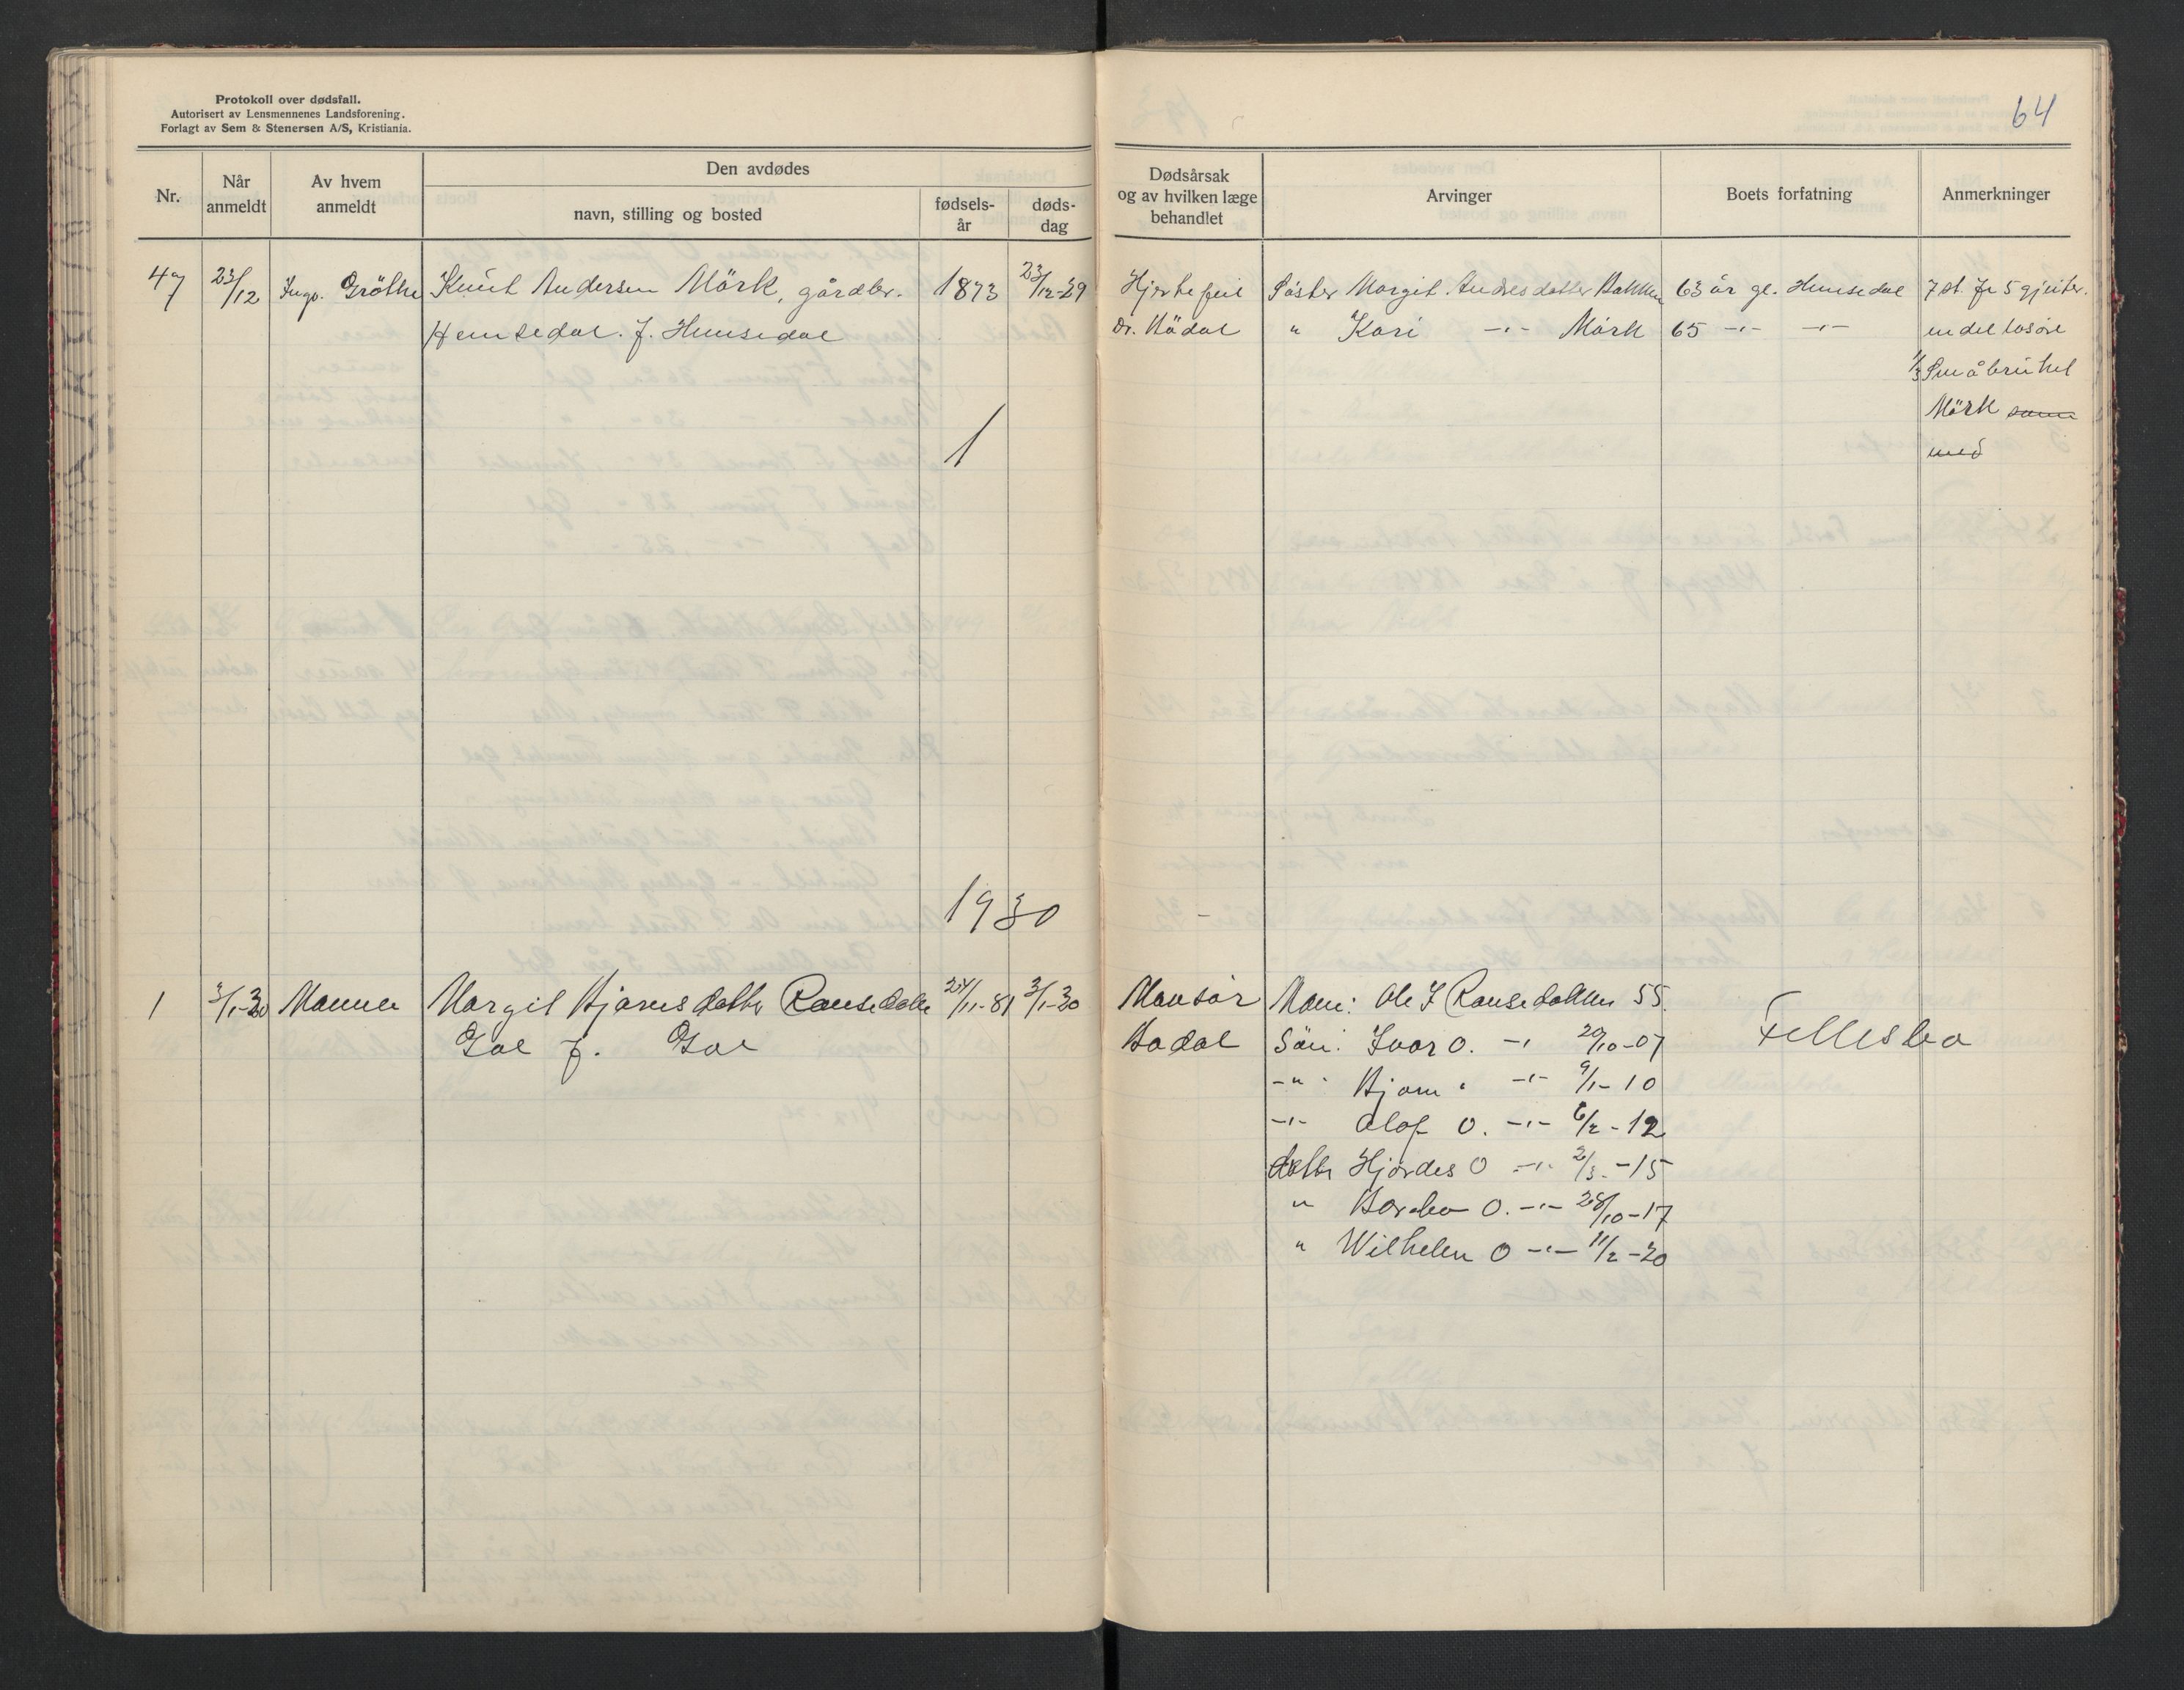 Protokoll over dødsfall.
Autorisert av Lensmennenes Landsforening.
Forlagt av Sem & Stenersen A/S, Kristiania.
64
Nr.
Når anmeldt
Av hvem anmeldt
Den avdødes
navn, stilling og bosted
fødsels-år
døds-dag
Dødsårsak og av hvilken læge behandlet
Arvinger
Boets forfatning
Anmerkninger
47 23/12 Ingv. Gröthe Knut Andersen Mörk, gårdbr. 1873 23/12-29 Hjertefeil Söster Margit Andresdatter Bakken 63 år gl. Hemsedal 7 st. fe 5 gjeiter.
Hemsedal. f. Hemsedal Dr. Nådal " Kari -"- Mörk 65 -"- -"- endel lösöre
1/3 Småbruket
Mörk som
med
1
1930
1 3/1-30 Mannen Margit Bjørnsdatter Ransedokken 24/11-81 3/1-30 Mann: Ole I Ransedokken 55.
Gol f. Gol Sön: Ivar O. -"- 20/10-07 Fellesbo
-"- Bjørn " -"- 9/1-10
-"- Olaf O. -"- 6/2-12
datter Hjørdes O -"- 2/3-15
" Barbo O. -"- 28/10-17
" Wilhelm O -"- 11/2-20